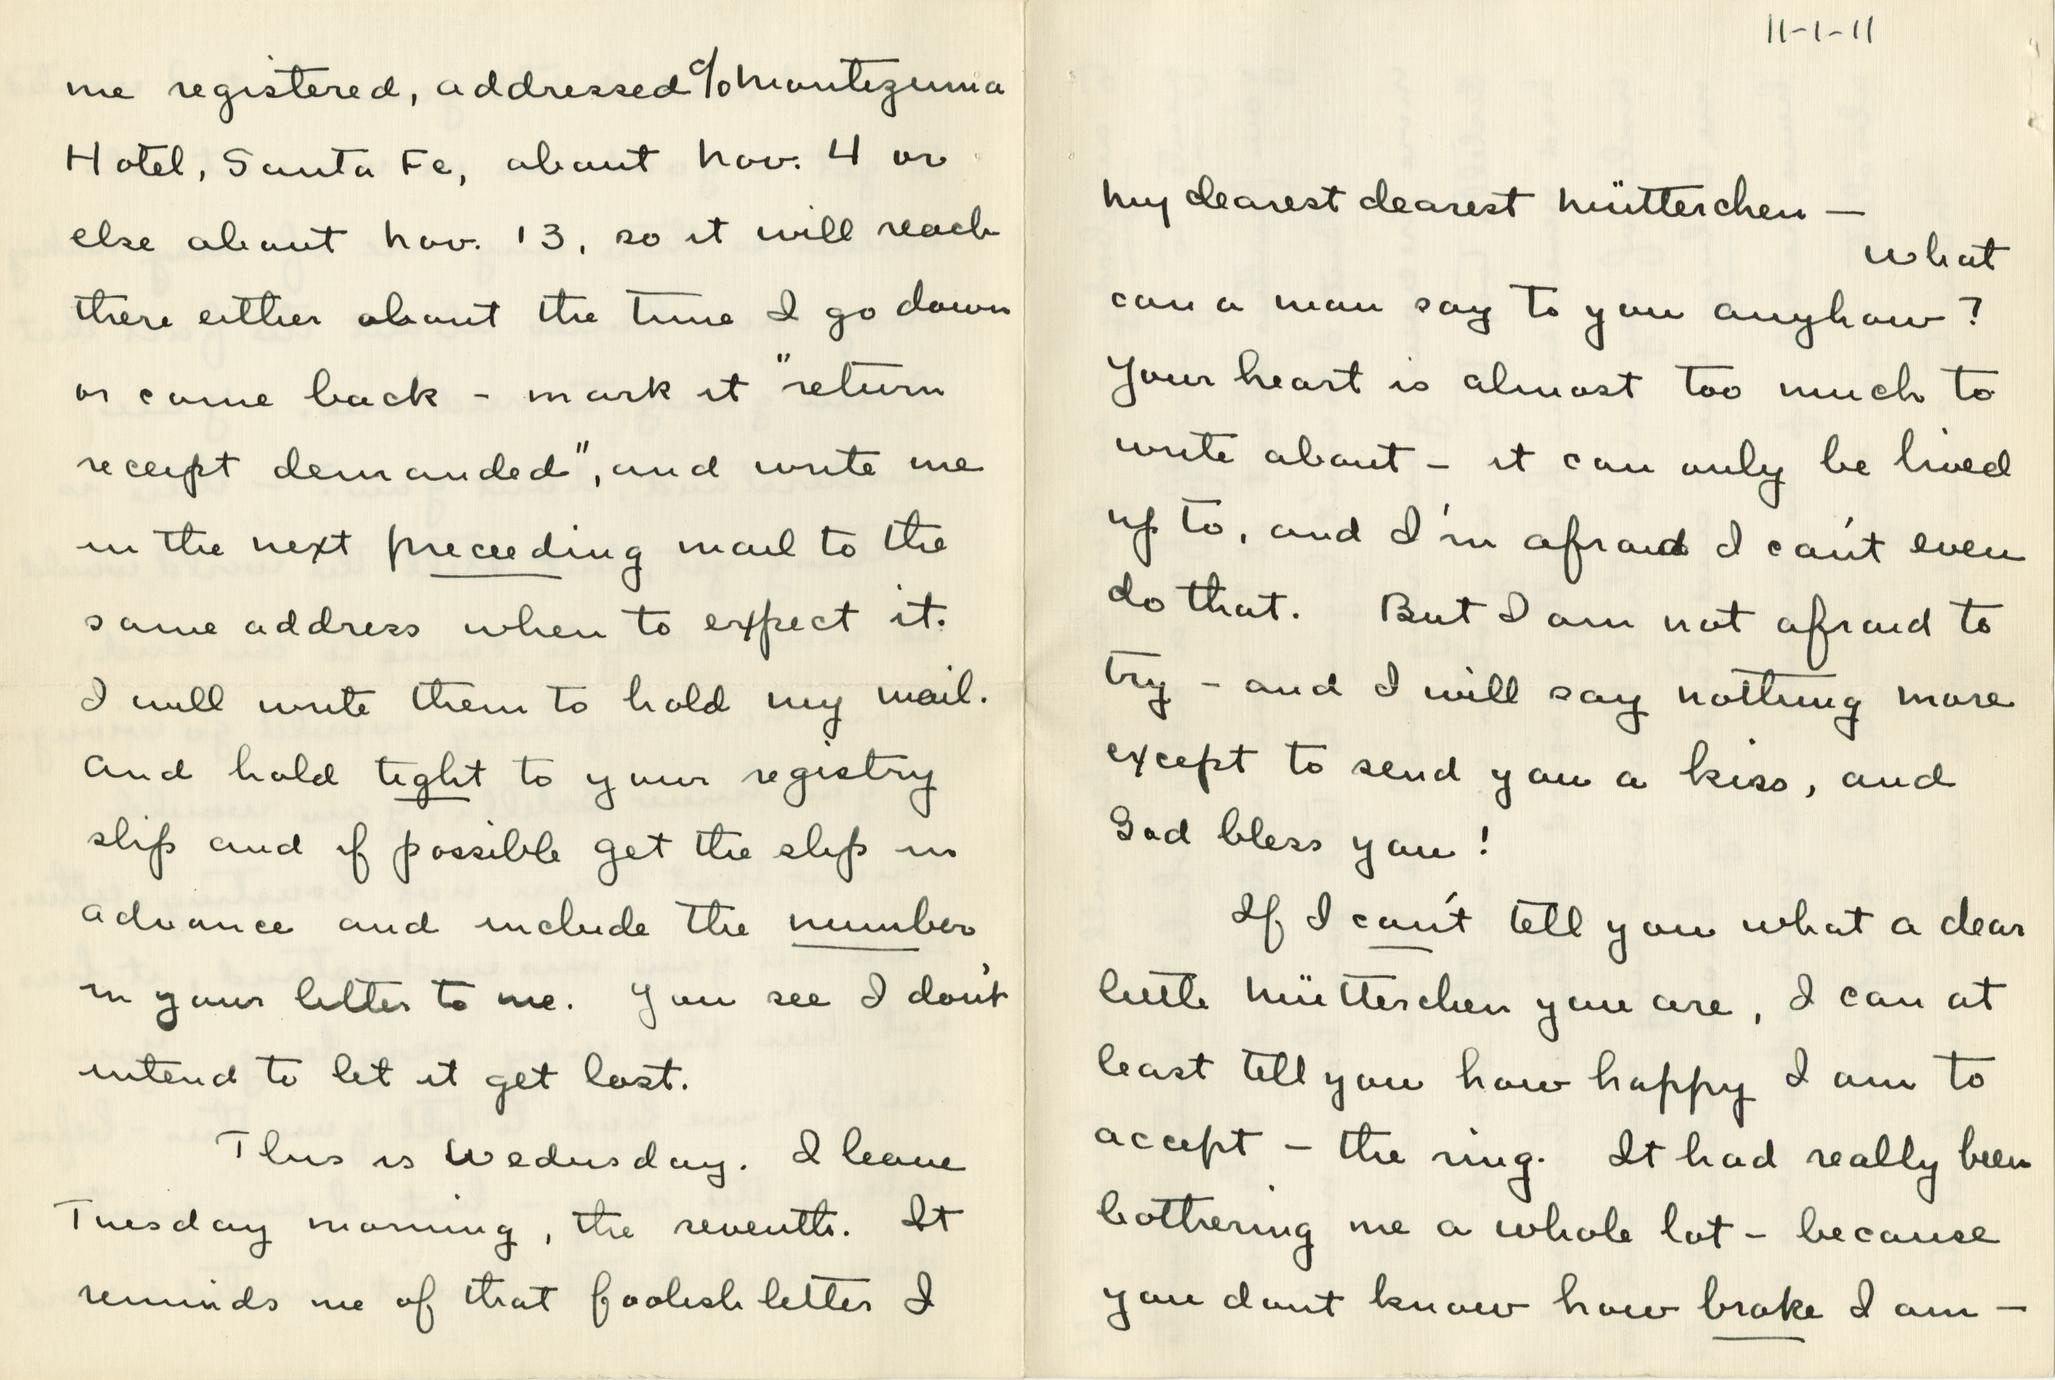 me registered, addressed c/o Montezuma
Hotel, Santa Fe, about Nov. 4 or
else about Nov. 13, so it will reach
there either about the time I go down
or come back - mark it "return
receipt demanded", and write me
in the next preceeding mail to the
same address when to expect it.
I will write them to hold my mail.
And hold tight to your registry
slip and if possible get the slip in
advance and include the number
in your letter to me. You see I don't
intend to let it get lost.
This is Wednesday. I leave
Tuesday morning, the seventh. It
reminds me of that foolish letter I
11-1-11
My dearest dearest Mütterchen —
what
can a man say to you anyhow?
Your heart is almost too much to
write about - it can only be lived
up to, and I'm afraid I can't even
do that. But I am not afraid to
try - and I will say nothing more
except to send you a kiss, and
God bless you!
If I can't tell you what a dear
little Mütterchen you are, I can at
least tell you how happy I am to
accept - the ring. It had really been
bothering me a whole lot - because
you dont know how broke I am -